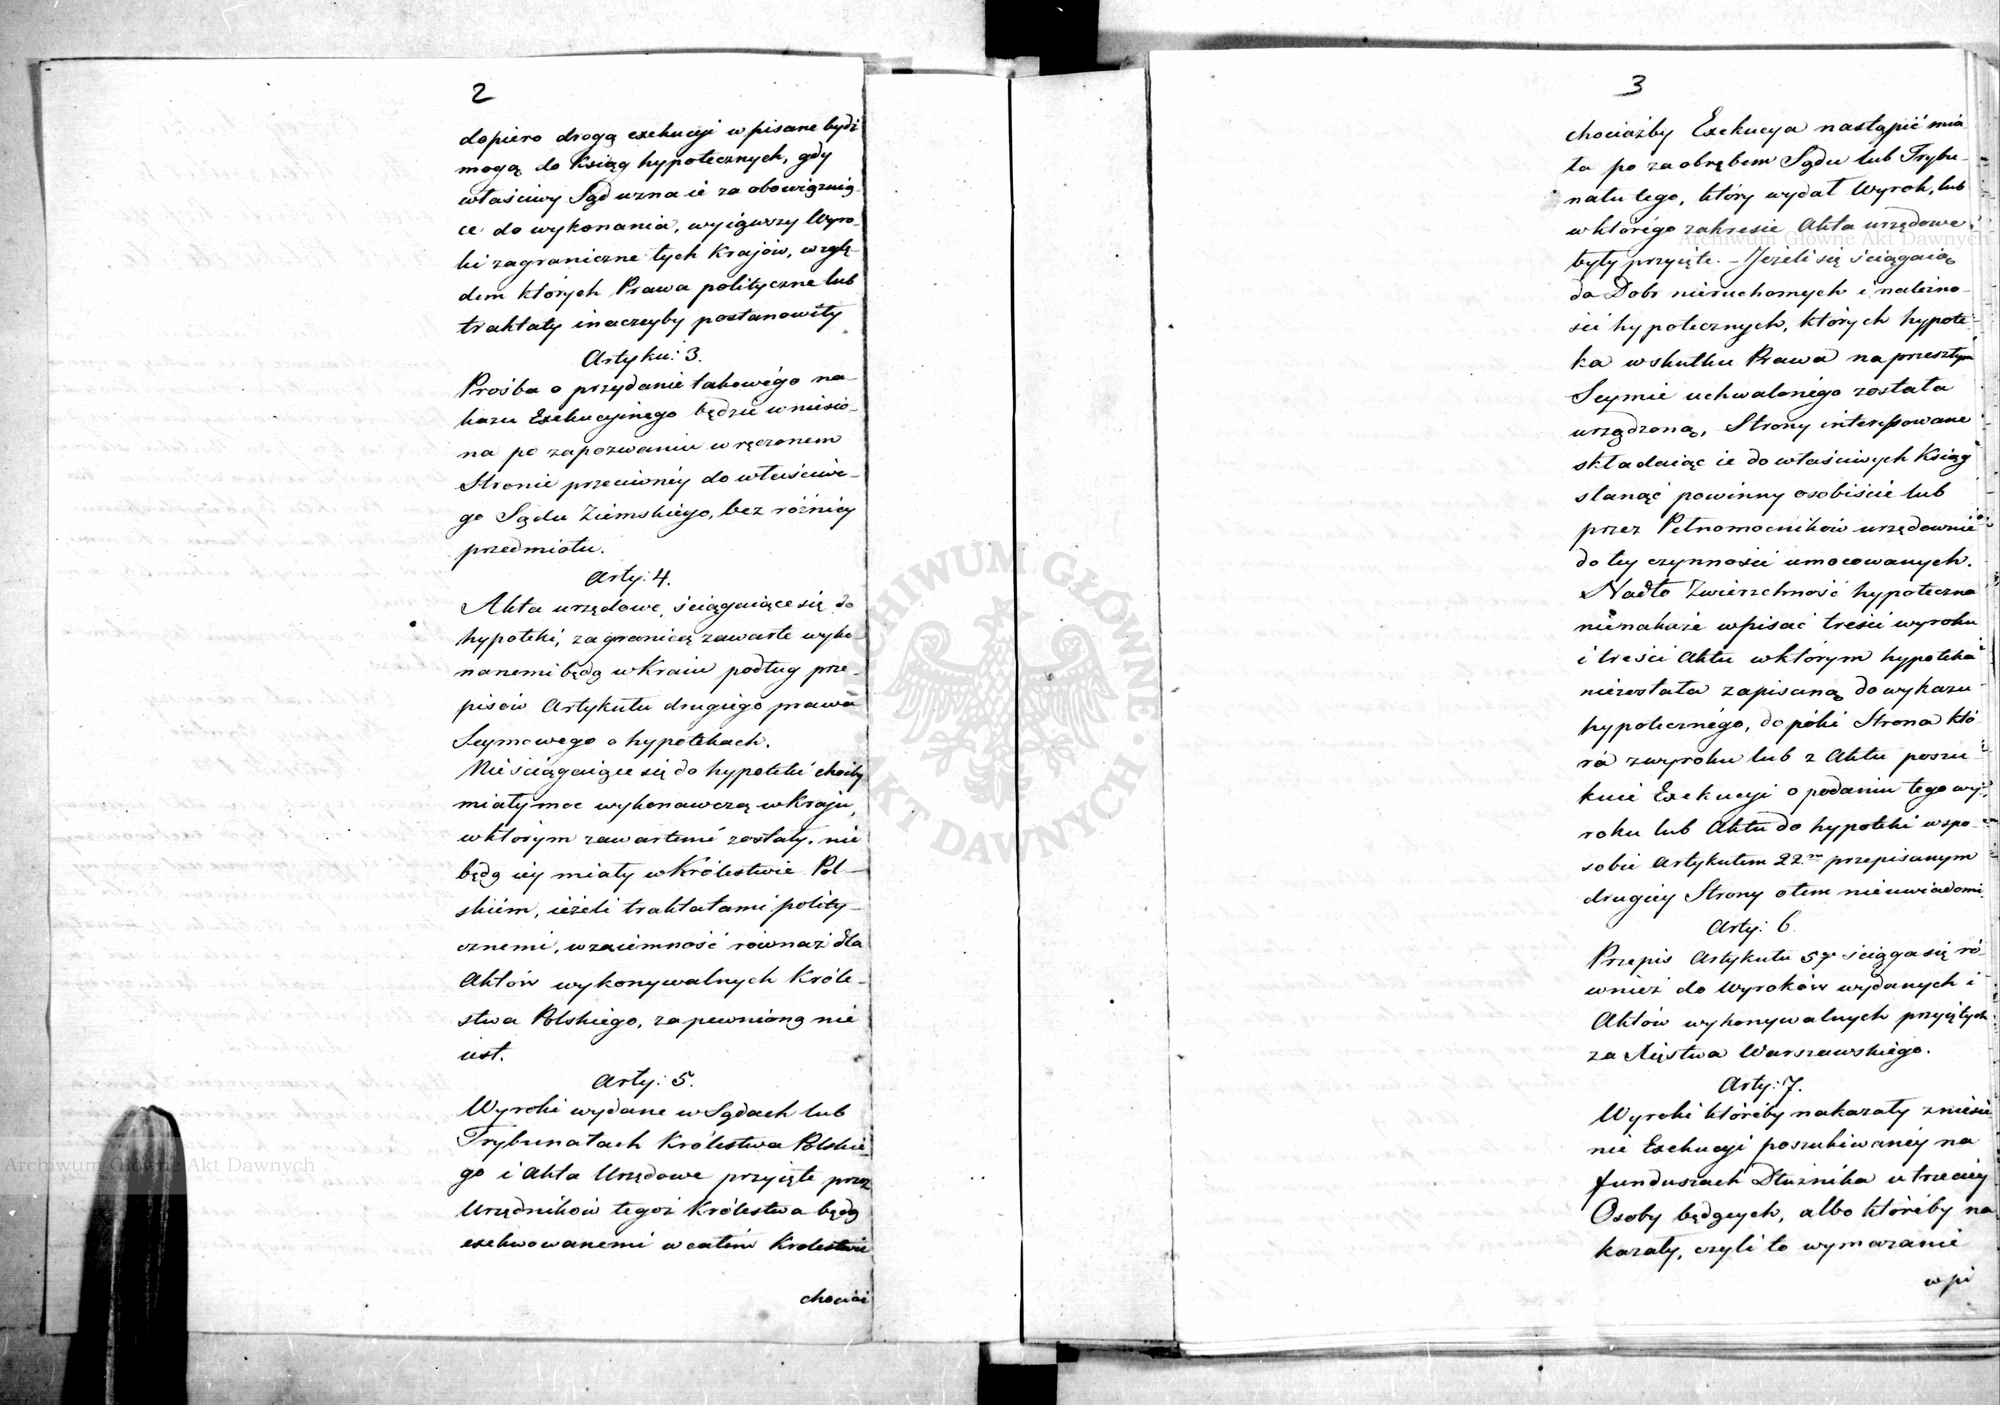 2
dopiero drogą exekucyi wpisane bydź
mogą do Ksiąg hypotecznych, gdy
właściwy Sąd uzna ie za obowiązuią-
ce do wykonania, wyiąwszy Wyro-
ki zagraniczne tych Kraiów, wzglę-
dem których Prawa polityczne lub
traktaty inaczeyby postanowiły
Artyku: 3.
Prośba o przydanie takowégo na-
kazu Exekucyinego będzie wniesio-
na po zapozwaniu wręczonem
Stronie przeciwnéy do właściwe-
go Sądu Ziemskiego, bez różnicy
przedmiotu.
Arty: 4.
Akta urzędowe, ściągaiące się do
hypoteki, zagranicą zawarte wyko-
nanemi będą w Kraiu podług prze-
pisów Artykułu drugiego prawa
Seymowego o hypotekach.
Nie ściągaiące się do hypoteki choćby
miały moc wykonawczą w Kraju,
w którym zawartemi zostały, nie
będą iey miały w Królestwie Pol-
skiém, ieżeli traktatami polity-
cznemi, wzaiemność równaż dla
Aktów wykonywalnych Króle-
stwa Polskiego, zapewnioną nie
iest.
Arty: 5.
Wyroki wydane w Sądach lub
Trybunałach Królestwa Polskie-
go i Akta Urzędowe przyięte przez
Urzędników tegoż Królestwa będą
exekwowanemi w całém Królestwie
chociaż
3
chociażby Exekucya nastąpić mia
ła po za obrębem Sądu lub Trybu-
nału tego, który wydał Wyrok, lub
w którégo zakresie Akta urzędowe
były przyięte. - Jeżeli się ściągaią
do Dobr nieruchomych i należno-
ści hypotecznych, których hypote-
ka w skutku Prawa na przeszłym
Seymie uchwalonégo została
urządzoną, Strony interessowane
składaiąc ie do właściwych Ksiąg
stanąć powinny osobiście lub
przez Pełnomocników urzędownie
do tey czynności umocowanych.
Nadto Zwierzchność hypoteczna
nienakaże wpisać treści wyroku
i treści Aktu w którym hypoteka
niezostała zapisaną do wykazu
hypotecznégo, dopóki Strona któ-
ra z wyroku lub z Aktu poszu-
kuie Exekucyi o podaniu tego wy-
roku lub Aktu do hypoteki w spo-
sobie Artykułem 22.m przepisanym
drugiéy Strony o tem nie uwiadomi.
Arty: 6.
Przepis Artykułu 5go ściąga się ró-
wnież do Wyroków wydanych i
Aktów wykonywalnych przyiętych
za Xięstwa Warszawskiego.
Arty: 7.
Wyroki któréby nakazały zniesie
nie Exekucyi poszukiwanéy na
funduszach Dłużnika u trzeciéy
Osoby będących, albo któréby na
kazały, czyli to wymazanie
wpi
Archiwum Główne Akt Dawnych
Archiwum Główne Akt Dawnych
ARCHIWUM GŁÓWNE · AKT DAWNYCH ·